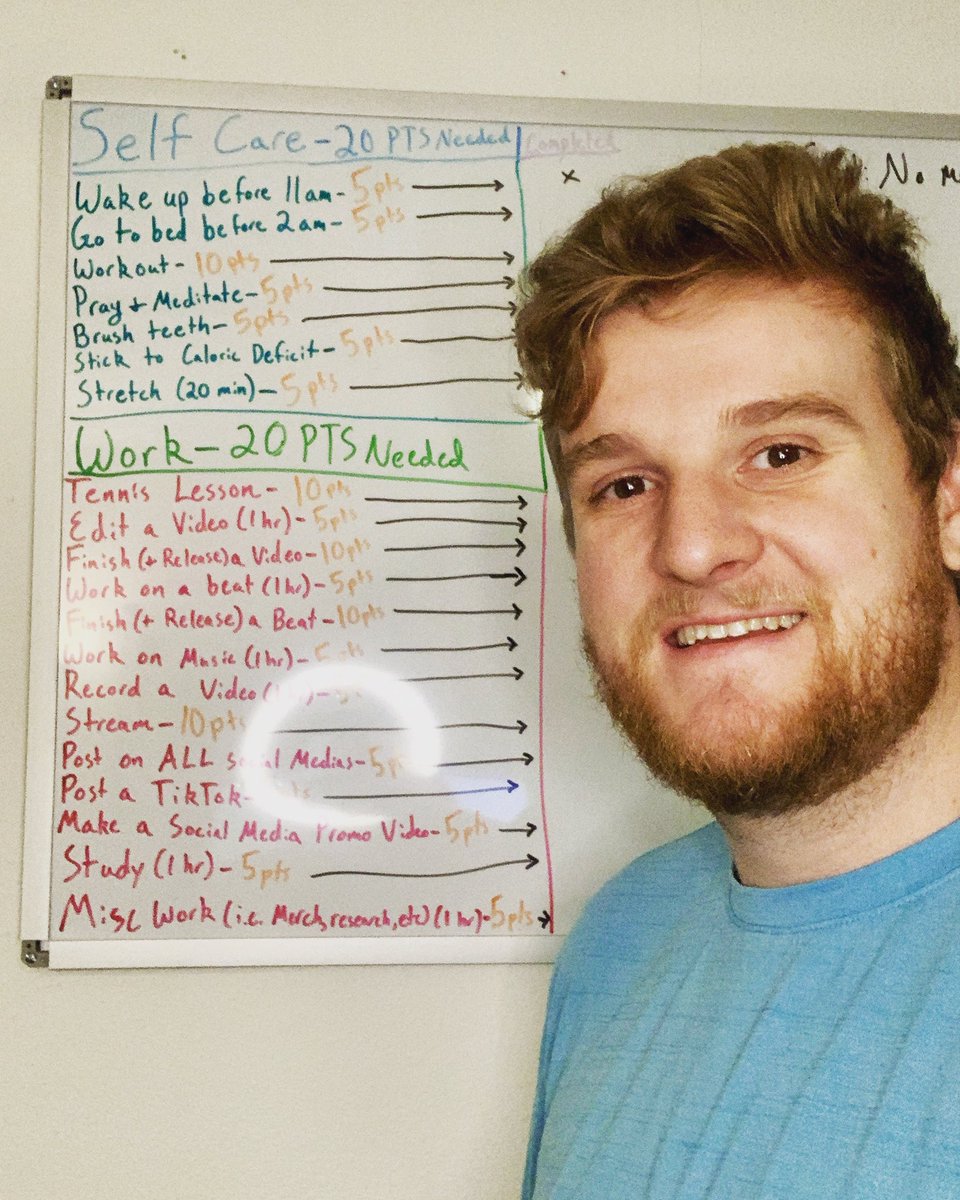 Self Care - 20 PTS Needed
Completed
Wake up before 11am - 5pts
x
No
Go to bed before 2am - 5pts
Workout - 10pts
Pray + Meditate - 5pts
Brush teeth - 5pts
Stick to Caloric Deficit - 5pts
Stretch (20 min) - 5pts
Work - 20 PTS Needed
Tennis Lesson - 10pts
Edit a Video (1hr) - 5pts
Finish (+ Release) a Video - 10pts
Work on a beat (1hr) - 5pts
Finish (+ Release) a Beat - 10pts
Work on Music (1hr) - 5pts
Record a Video
Stream - 10pts
Post on ALL Social Medias - 5p
Post a TikTok -
Make a Social Media Promo Video - 5pts
Study (1 hr) - 5pts
Misc Work (i.e. Merch, research, etc) (1 hr) - 5pts